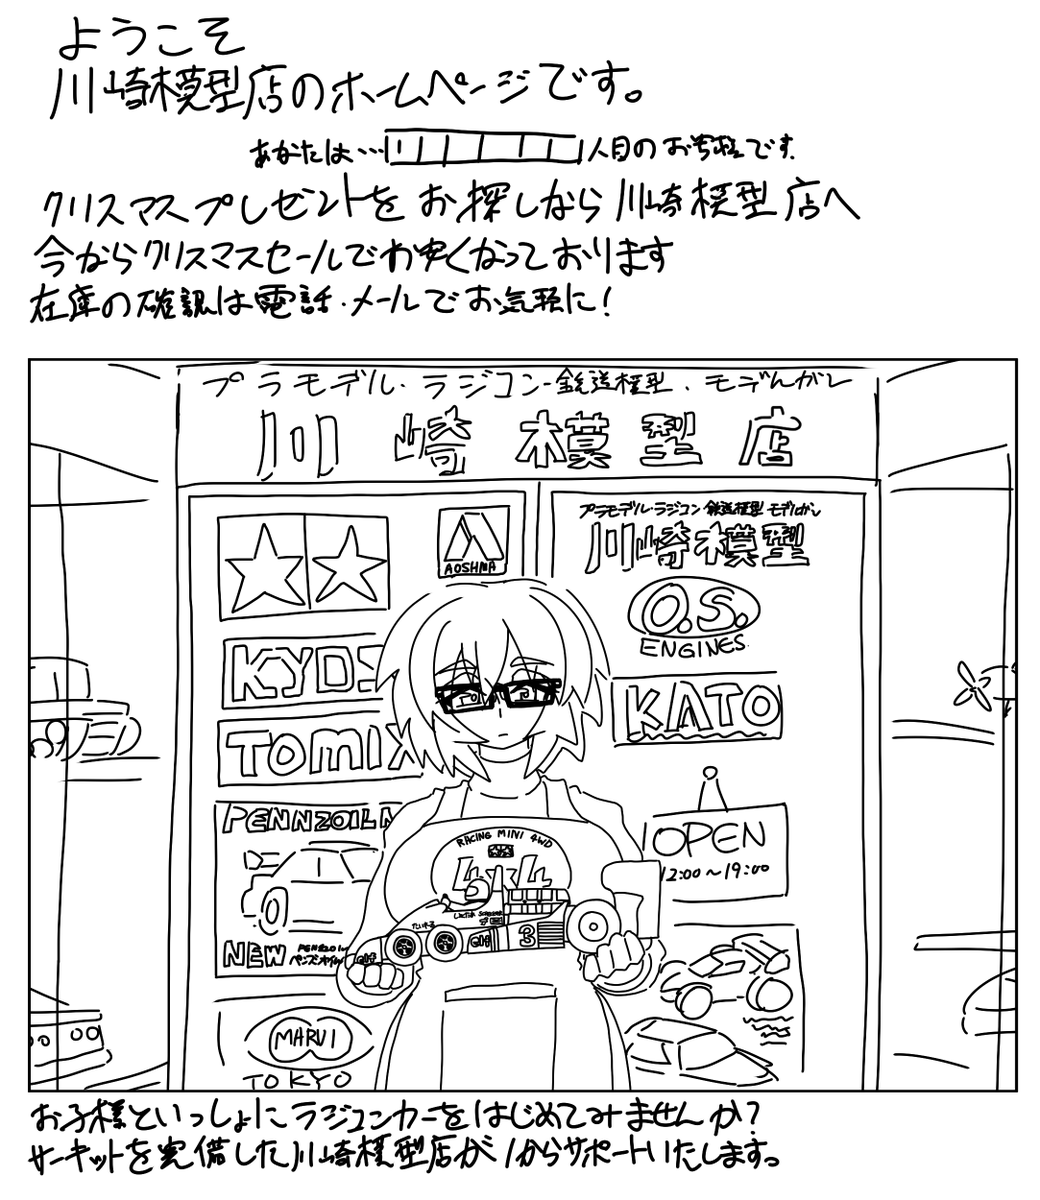 ようこそ
川崎模型店のホームページです。
あなたは…人目のお客様です.
クリスマスプレゼントをお探しなら川崎模型店へ
今ならクリスマスセールでお安くなっております
在庫の確認は電話・メールでお気軽に!
プラモデル・ラジコン・鉄道模型・モデルガン
川崎模型店
AOSHIMA
プラモデル・ラジコン 鉄道模型 モデルガン
川崎模型
O.S.
ENGINES
KYOS
KATO
TOMIX
PENNZOIL N
OPEN
12:00～19:00
RACING MINI 4WD
4x4
3
NEW
PENNZOIL
ペンズオイル
MARUI
TOKYO
お子様といっしょにラジコンカーをはじめてみませんか?
サーキットを完備した川崎模型店が1からサポートいたします。